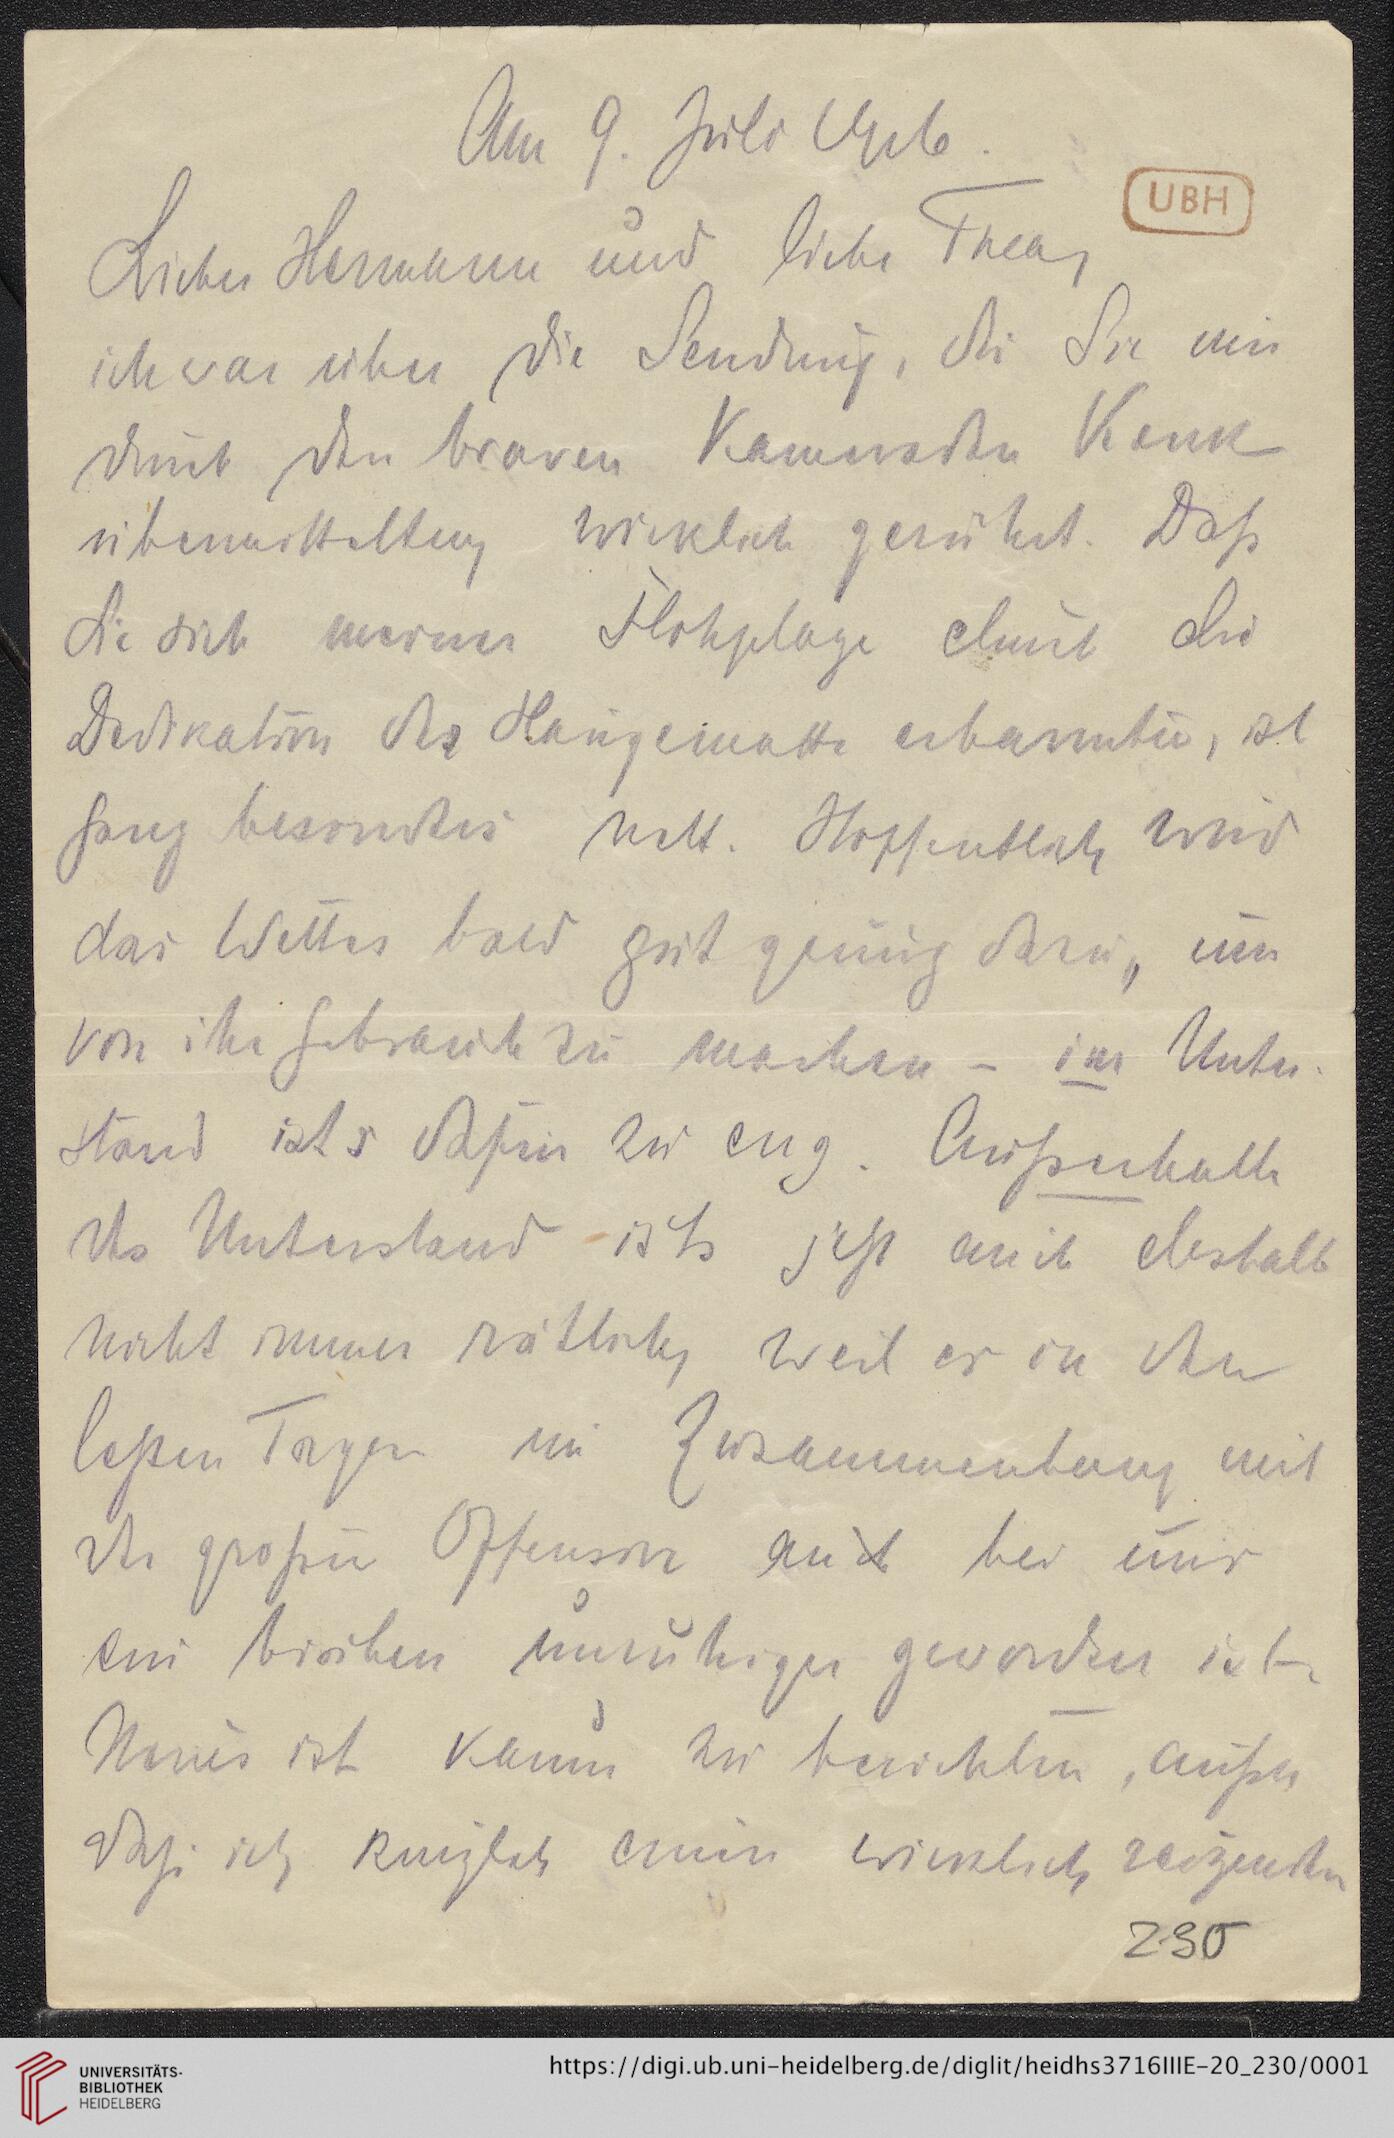 Am 9. Juli
UBH
Lieber Hermann und liebe Thea,
ich war über die Sendung, die Sie mir
durch den braven Kameraden Kenk
übermittelten, wirklich gerührt. Daß
Sie sich meiner Flohplage durch die
Dedikation der Hängematte erbarmten, ist
ganz besonders nett. Hoffentlich wird
das Wetter bald gut genug dazu, um
von ihr Gebrauch zu machen – im Unter-
stand ists dafür zu eng. Außerhalb
des Unterstand ists jetzt auch deshalb
nicht immer rätlich, weil es in den
letzten Tagen im Zusammenhang mit
der großen Offensive auch bei uns
ein bischen unruhiger geworden ist.
Neues ist kaum zu berichten, außer
daß ich kürzlich einen wirklich reizenden
230
UNIVERSITÄTS-
BIBLIOTHEK
HEIDELBERG
https://digi.ub.uni-heidelberg.de/diglit/heidhs3716IIIE-20_230/0001